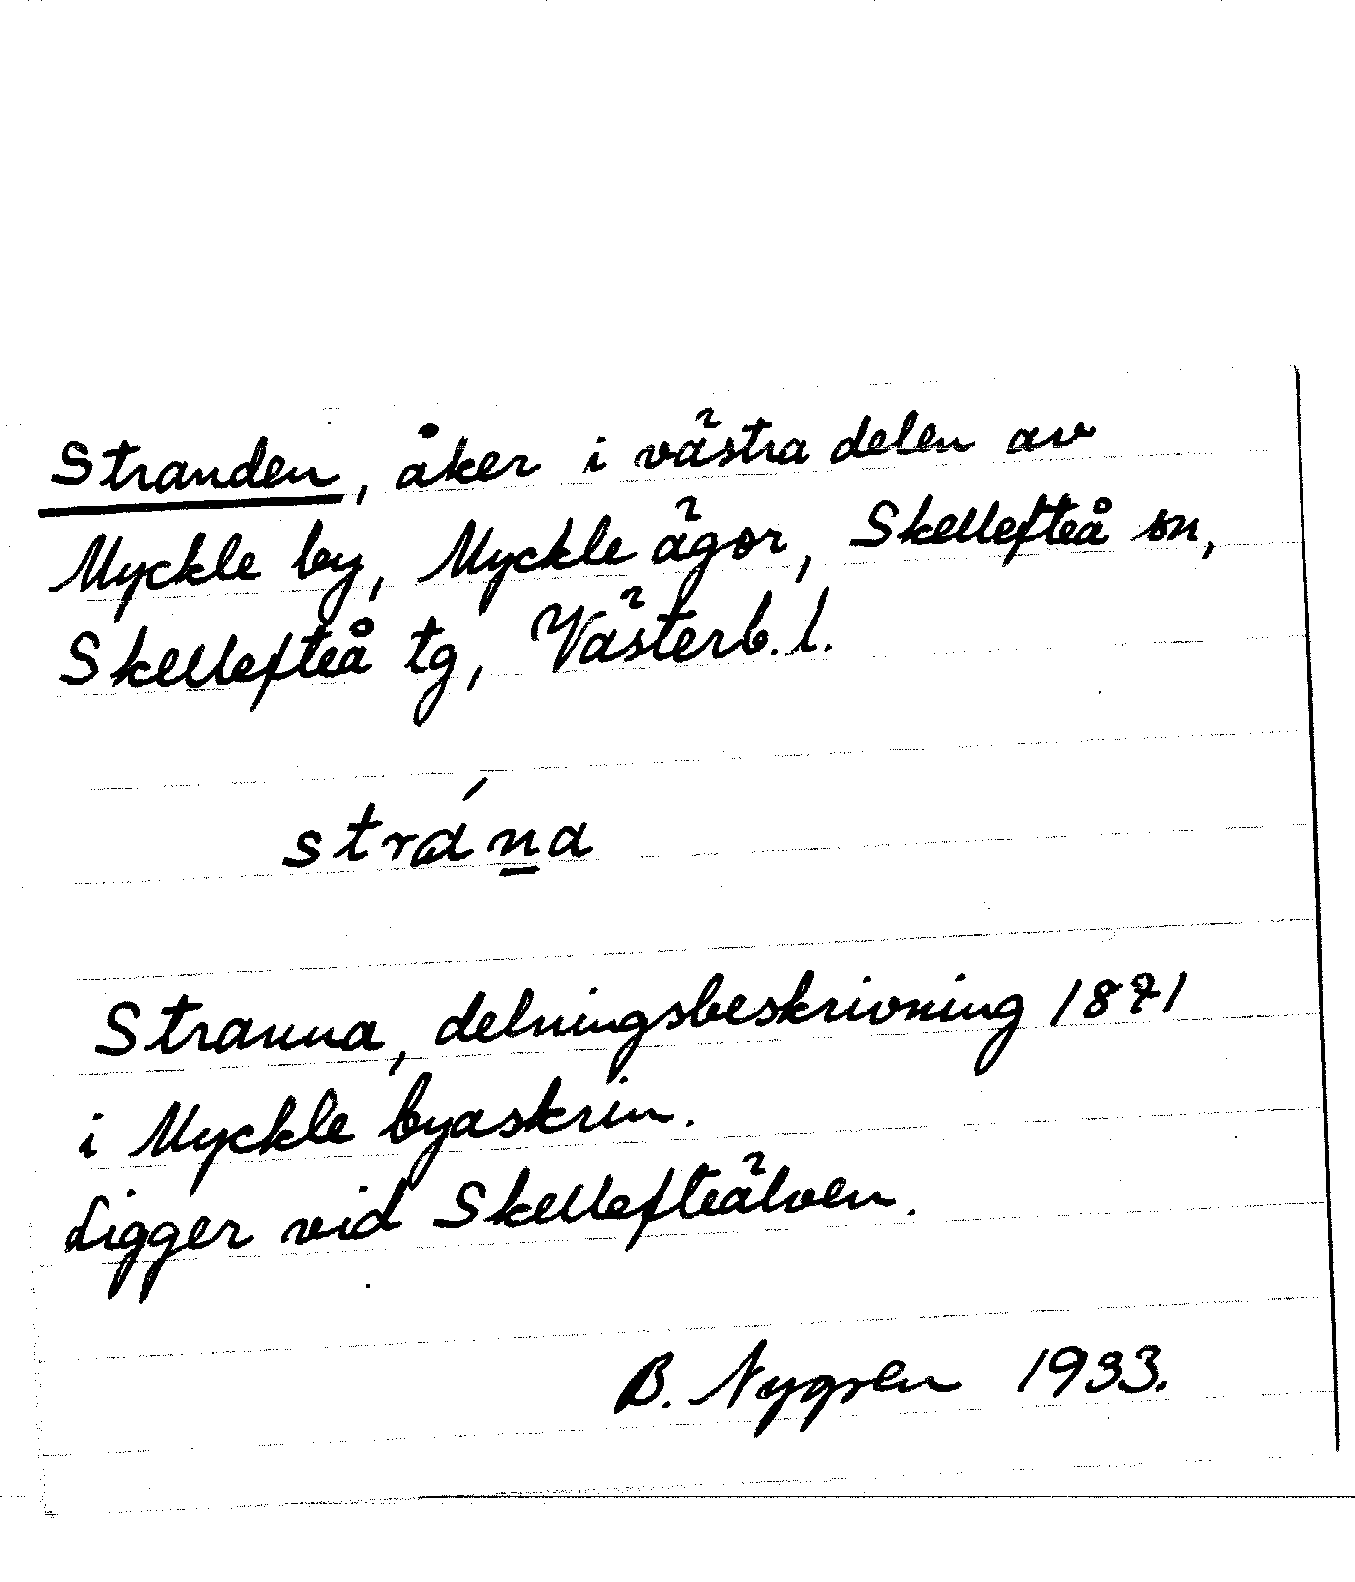 Stranden, åker i västra delen av
Myckle by, Myckle ägor, Skellefteå sn,
Skellefteå tg, Västerb. l.
strána
Stranna, delningsbeskrivning 1871
i Myckle byaskrin.
Ligger vid Skellefteälven.
B. Nygren 1933.